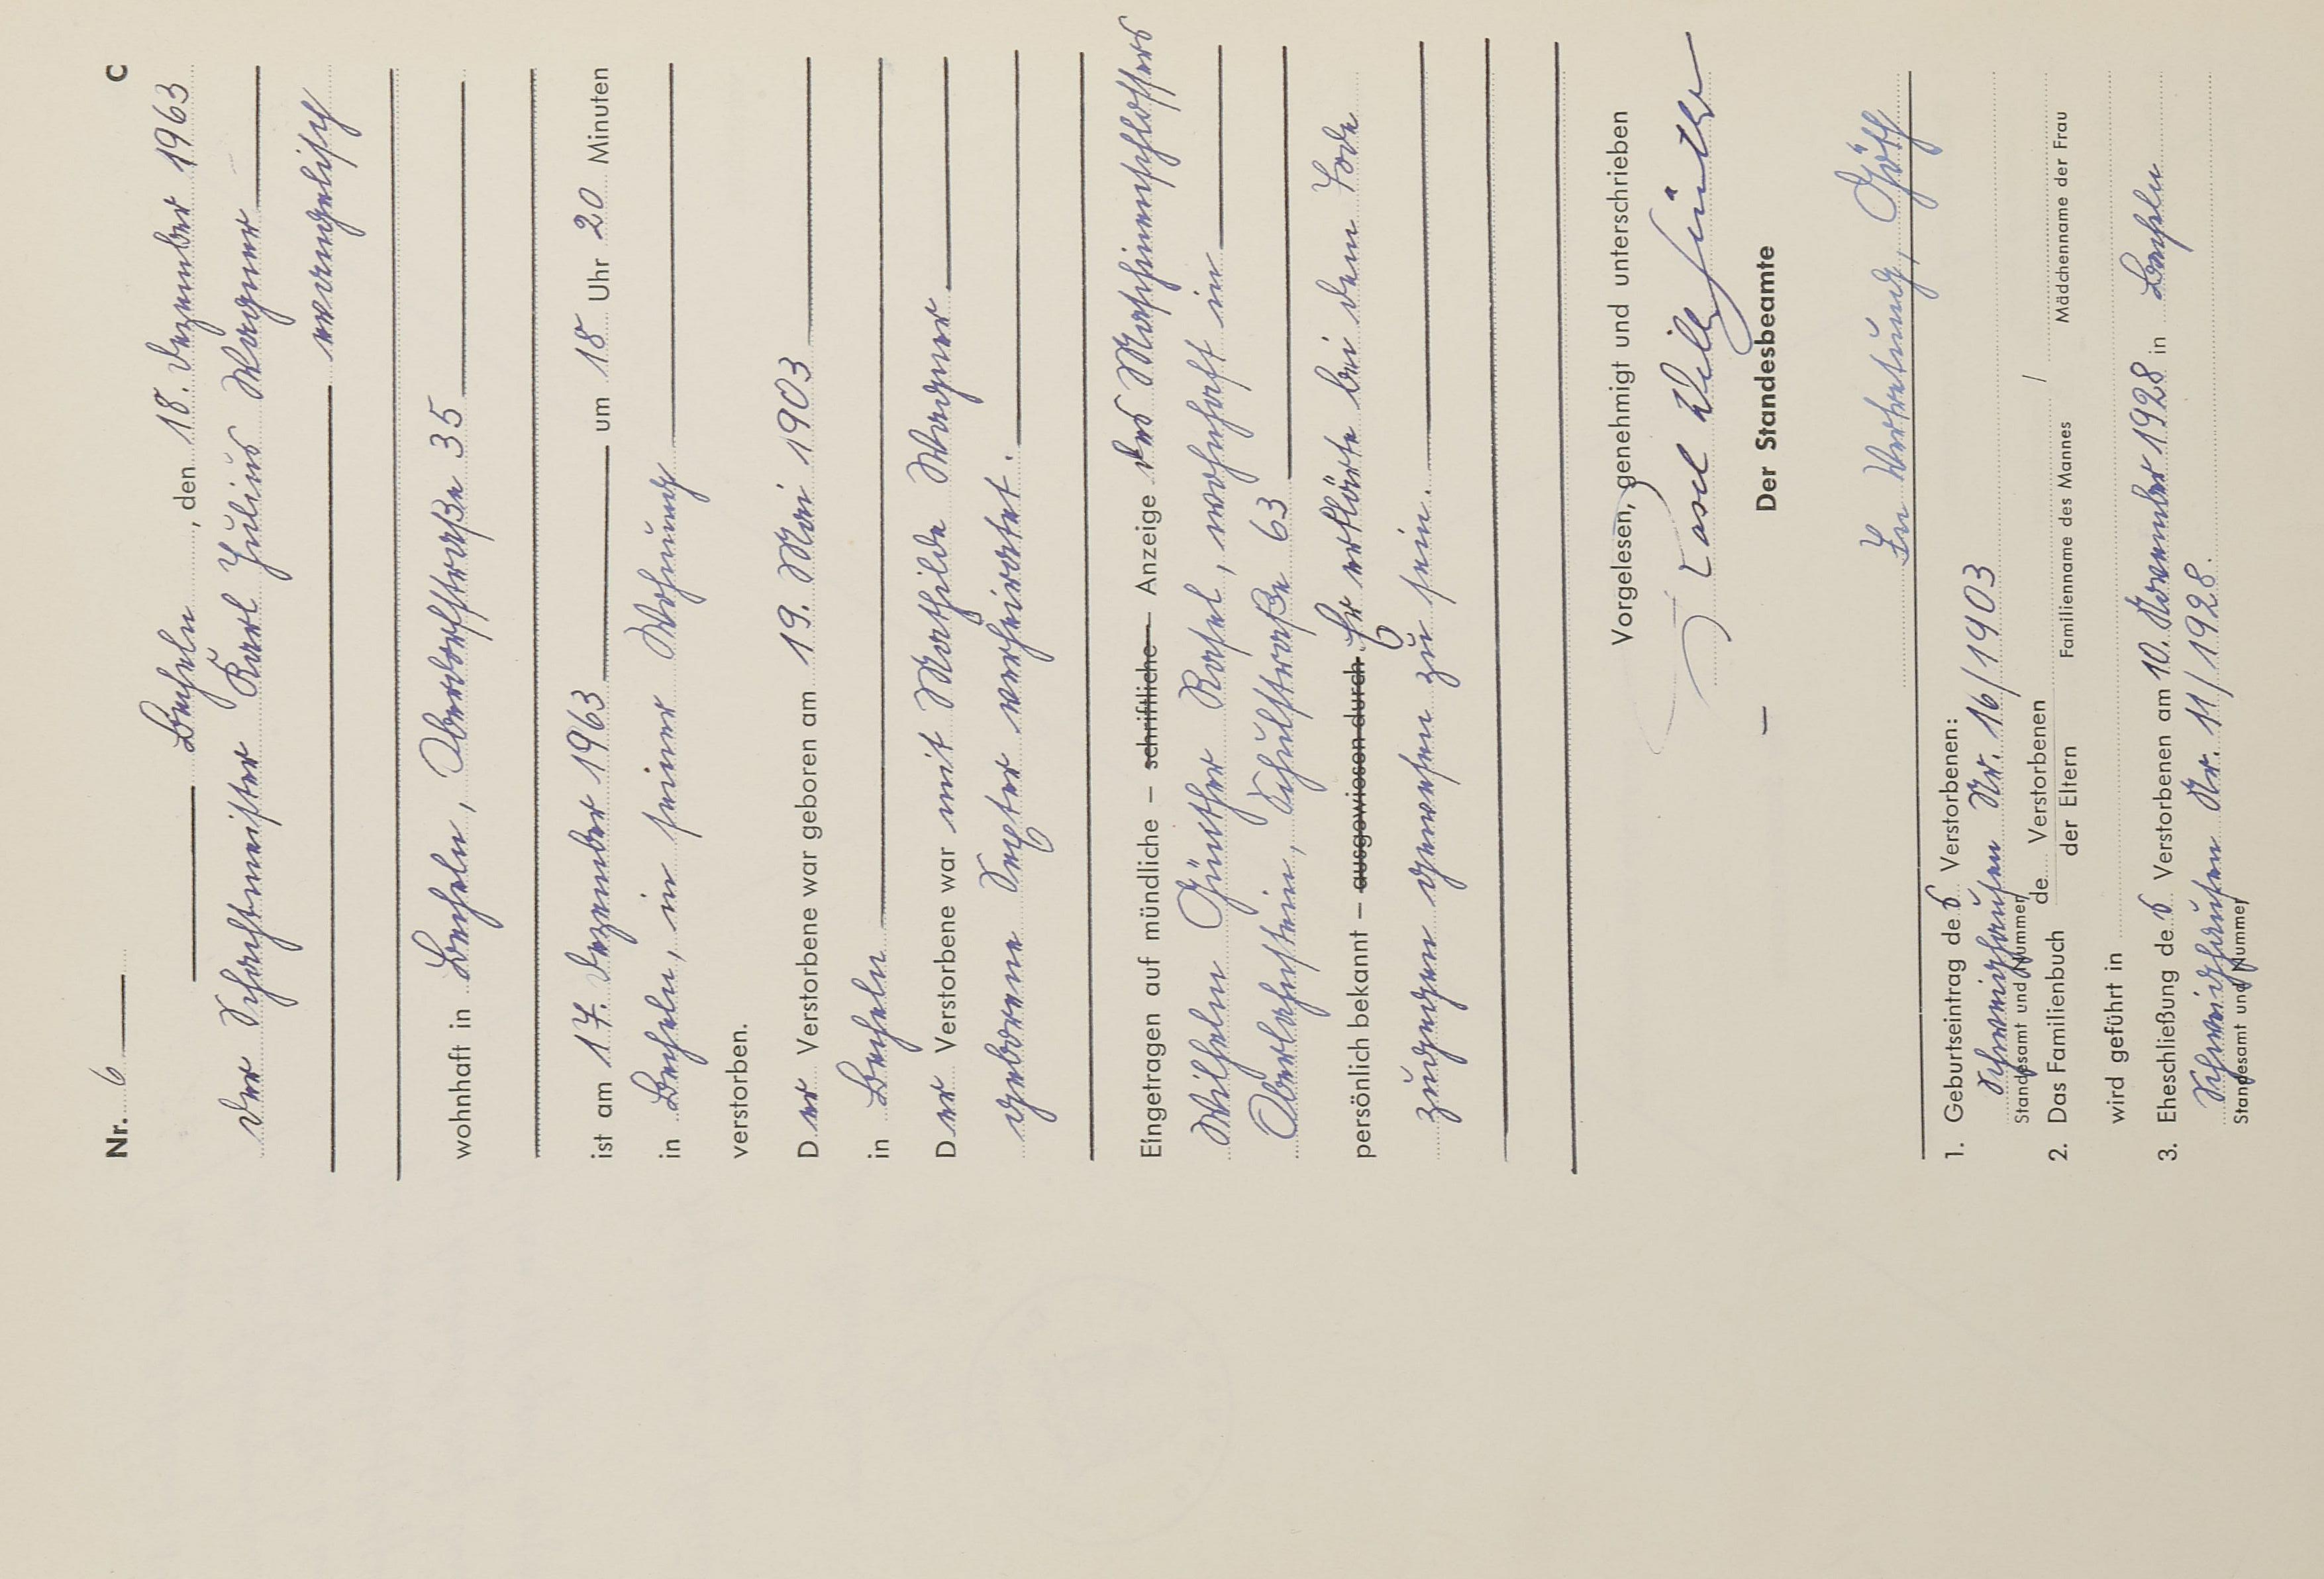 Nr. 6 C
Becheln, den 18. Dezember 1963
Der Schachtmeister Karl Julius Wagner
evangelisch
wohnhaft in Becheln, Oberdorfstraße 35
ist am 17. Dezember 1963 um 18 Uhr 20 Minuten
in Becheln, in seiner Wohnung
verstorben.
Der Verstorbene war geboren am 19. Mai 1903
in Becheln
Der Verstorbene war mit Mathilde Wagner
geborene verheiratet.
Eingetragen auf mündliche – schriftliche – Anzeige des Maschinenschlossers
Wilhelm Günther Kasel, wohnhaft in
Oberlahnstein, Schulstraße 63
persönlich bekannt – ausgewiesen durch. Er erklärte bei dem Tode
zugegen gewesen zu sein.
Vorgelesen, genehmigt und unterschrieben
Der Standesbeamte
In Vertretung, Göth
1. Geburtseintrag des Verstorbenen:
Schweighausen Nr. 16/1903
Standesamt und Nummer
2. Das Familienbuch de Verstorbenen der Eltern /
Familienname des Mannes Mädchenname der Frau
wird geführt in
3. Eheschließung des Verstorbenen am 10. November 1928 in Becheln
Schweighausen Nr. 11/1928.
Standesamt und Nummer